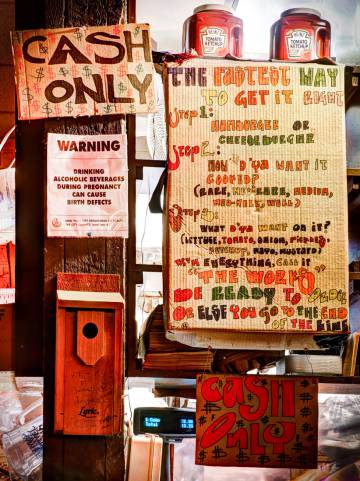 CASH
ONLY
HEINZ
TOMATO
KETCHUP
HEINZ
TOMATO
KETCHUP
THE FASTEST WAY
TO GET IT RIGHT
Step 1:
HAMBURGER OR
CHEESEBURGER
Step 2:
HOW D'YA WANT IT
COOKED?
(RARE, MED-RARE, MEDIUM,
MED-WELL, WELL)
Step 3:
WHAT D'YA WANT ON IT?
(LETTUCE, TOMATO, ONION, PICKLES
KETCHUP, MAYO, MUSTARD)
WITH EVERYTHING, CALL IT
"THE WORKS"
BE READY TO ORDER
OR ELSE YOU GO TO THE END
OF THE LINE
WARNING
DRINKING
ALCOHOLIC BEVERAGES
DURING PREGNANCY
CAN CAUSE
BIRTH DEFECTS
Lyric
Total
CASH
ONLY